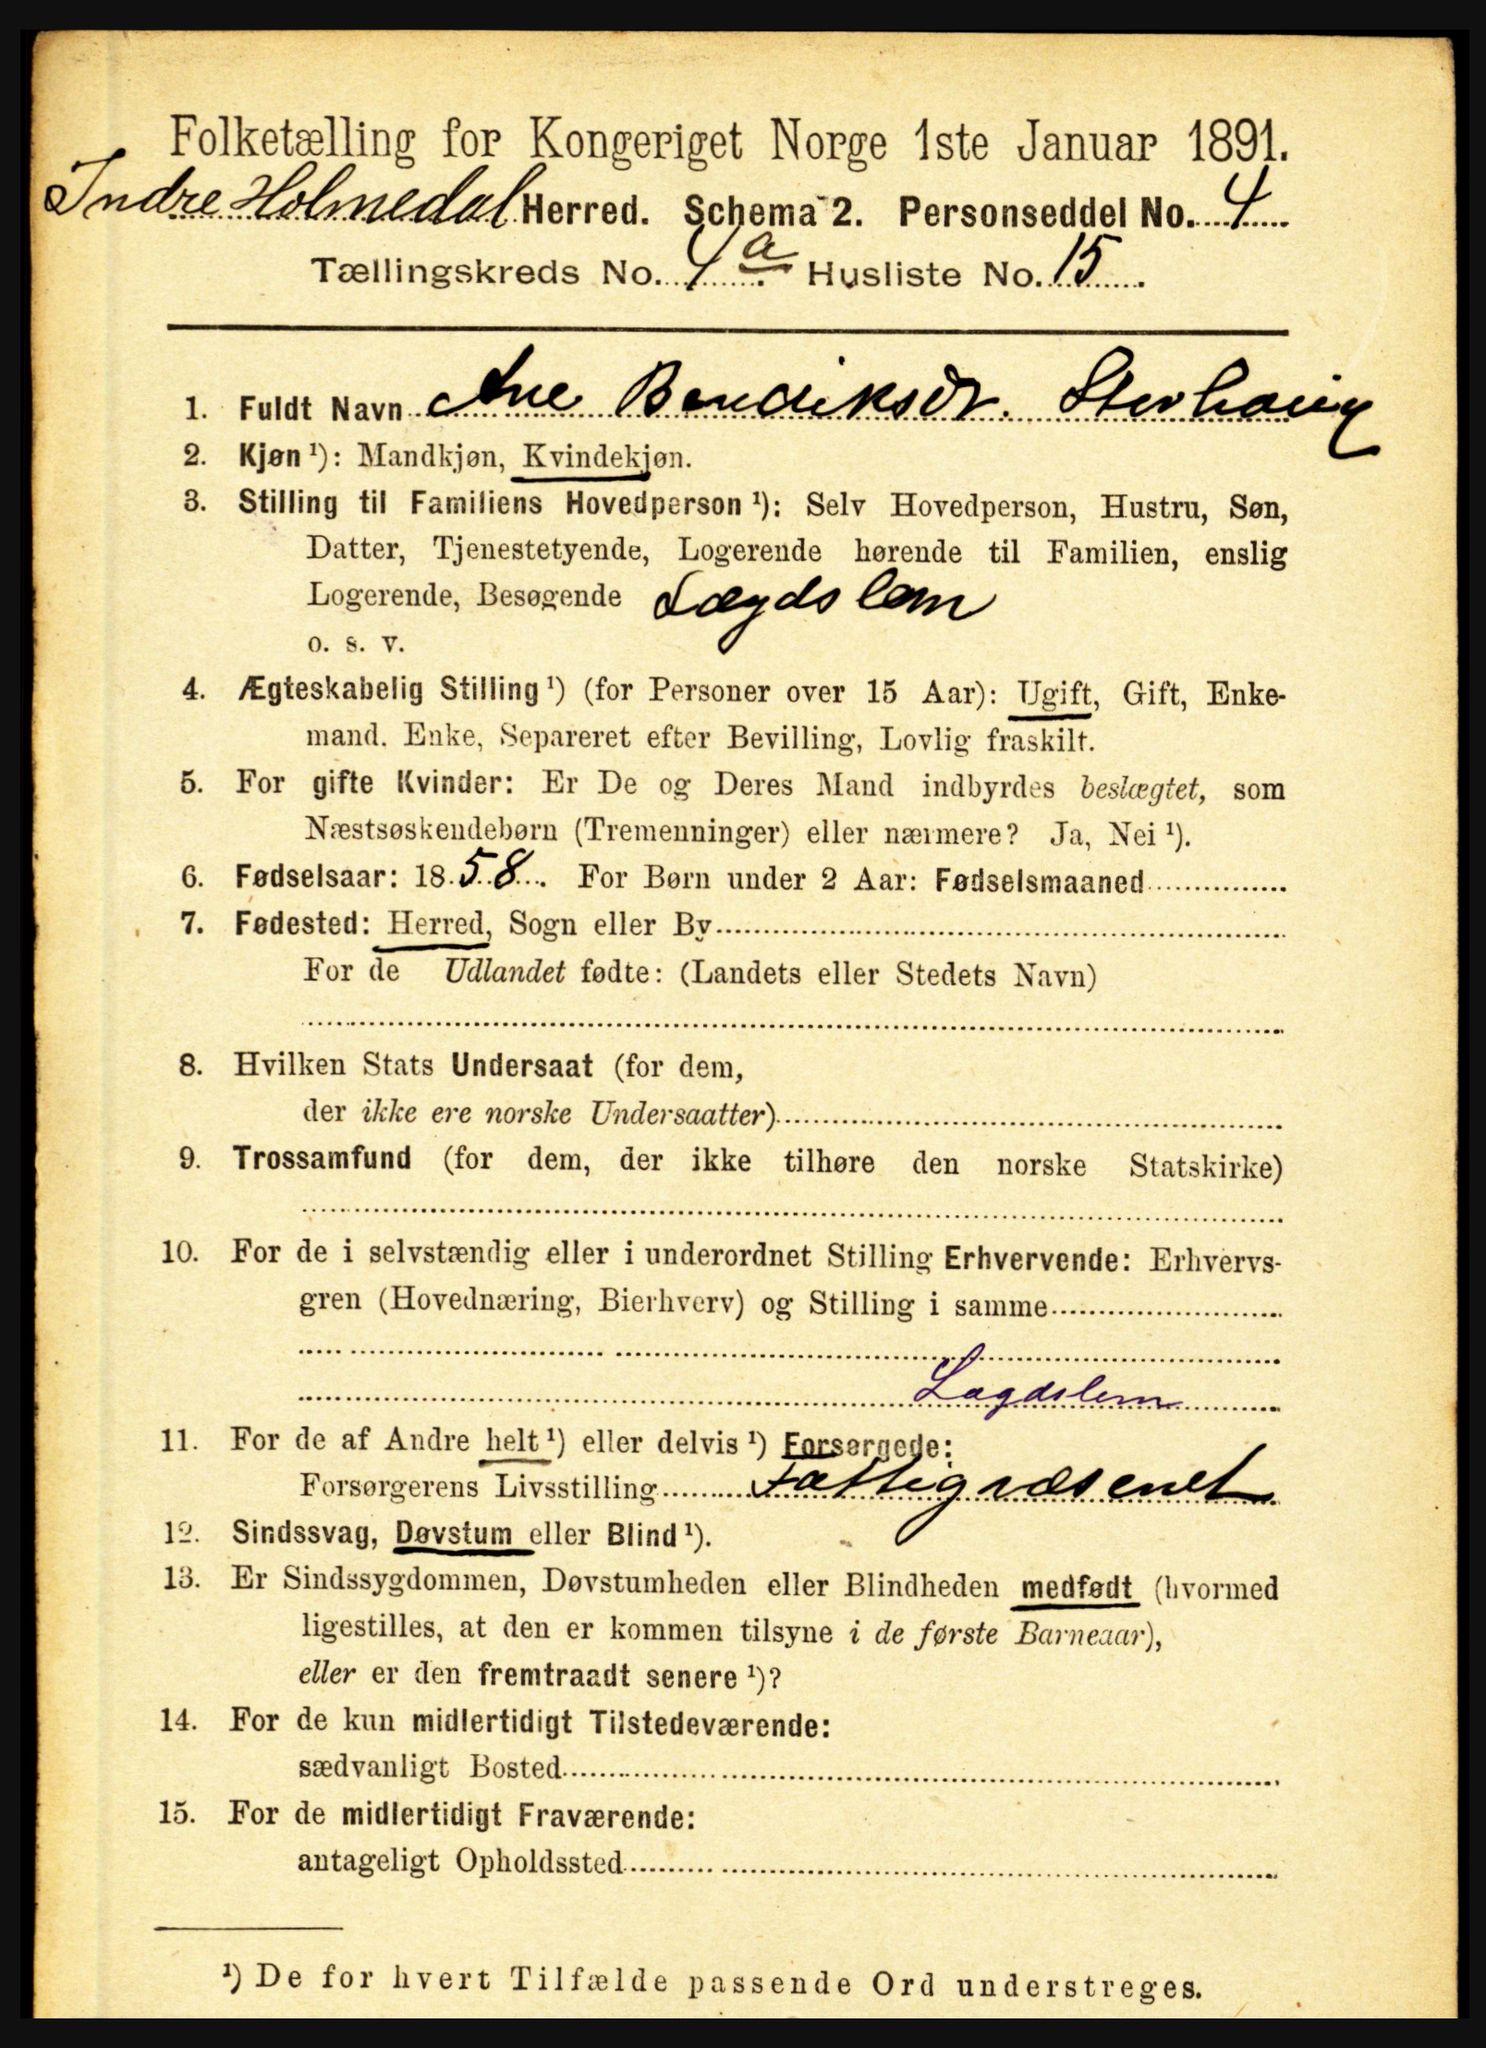 Folketælling for Kongeriget Norge 1ste Januar 1891.
Indre Holmedal Herred. Schema 2. Personseddel No. 4
Tællingskreds No. 4 a. Husliste No. 15.
1. Fuldt Navn Ane Bendiksdr.
2. Kjøn ¹): Mandkjøn, Kvindekjøn.
3. Stilling til Familiens Hovedperson ¹): Selv Hovedperson, Hustru, Søn,
Datter, Tjenestetyende, Logerende hørende til Familien, enslig
Logerende, Besøgende Lægdslem
o. s. v.
4. Ægteskabelig Stilling ¹) (for Personer over 15 Aar): Ugift, Gift, Enke-
mand. Enke, Separeret efter Bevilling, Lovlig fraskilt.
5. For gifte Kvinder: Er De og Deres Mand indbyrdes beslægtet, som
Næstsøskendebørn (Tremenninger) eller nærmere? Ja, Nei ¹).
6. Fødselsaar: 1858. For Børn under 2 Aar: Fødselsmaaned
7. Fødested: Herred, Sogn eller By
For de Udlandet fødte: (Landets eller Stedets Navn)
8. Hvilken Stats Undersaat (for dem,
der ikke ere norske Undersaatter)
9. Trossamfund (for dem, der ikke tilhøre den norske Statskirke)
10. For de i selvstændig eller i underordnet Stilling Erhvervende: Erhvervs-
gren (Hovednæring, Bierhverv) og Stilling i samme
Lægdslem
11. For de af Andre helt ¹) eller delvis ¹) Forsørgede:
Forsørgerens Livsstilling Fattigvæsenet
12. Sindssvag, Døvstum eller Blind ¹).
13. Er Sindssygdommen, Døvstumheden eller Blindheden medfødt (hvormed
ligestilles, at den er kommen tilsyne i de første Barneaar),
eller er den fremtraadt senere ¹)?
14. For de kun midlertidigt Tilstedeværende:
sædvanligt Bosted
15. For de midlertidigt Fraværende:
antageligt Opholdssted
¹) De for hvert Tilfælde passende Ord understreges.